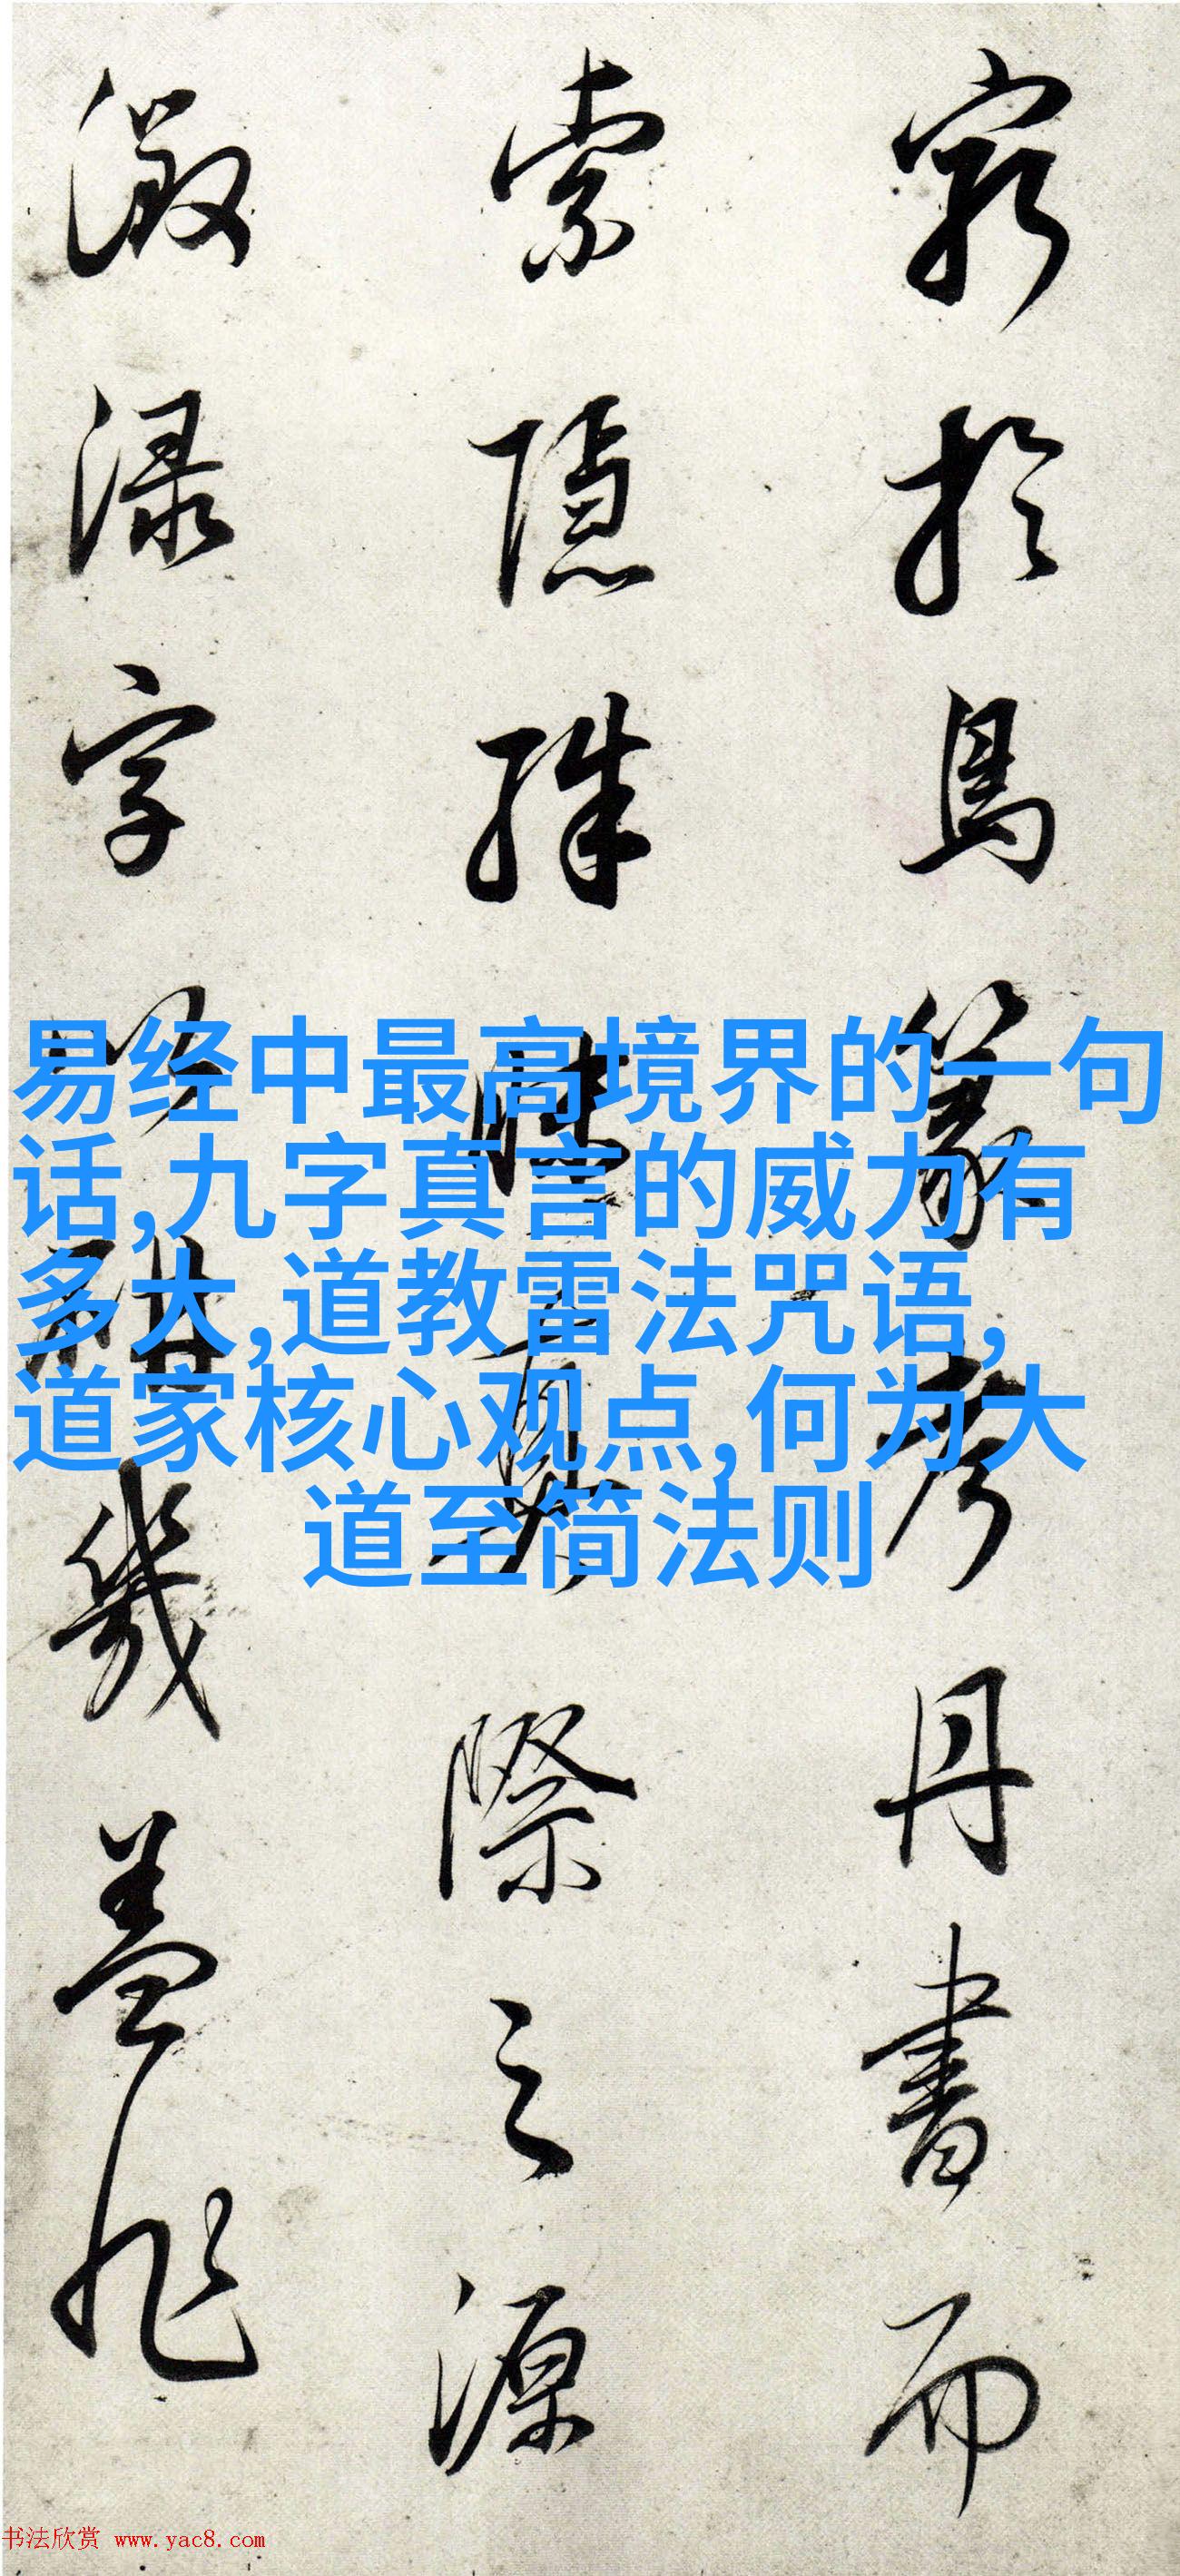 窮於鳥篆考丹書而
索隱殊昧真際之源
渌字以幾盖非
易经中最高境界的一句
话,九字真言的威力有
多大,道教雷法咒语,
道家核心观点,何为大
道至简法则
书法欣赏 www.yac8.com